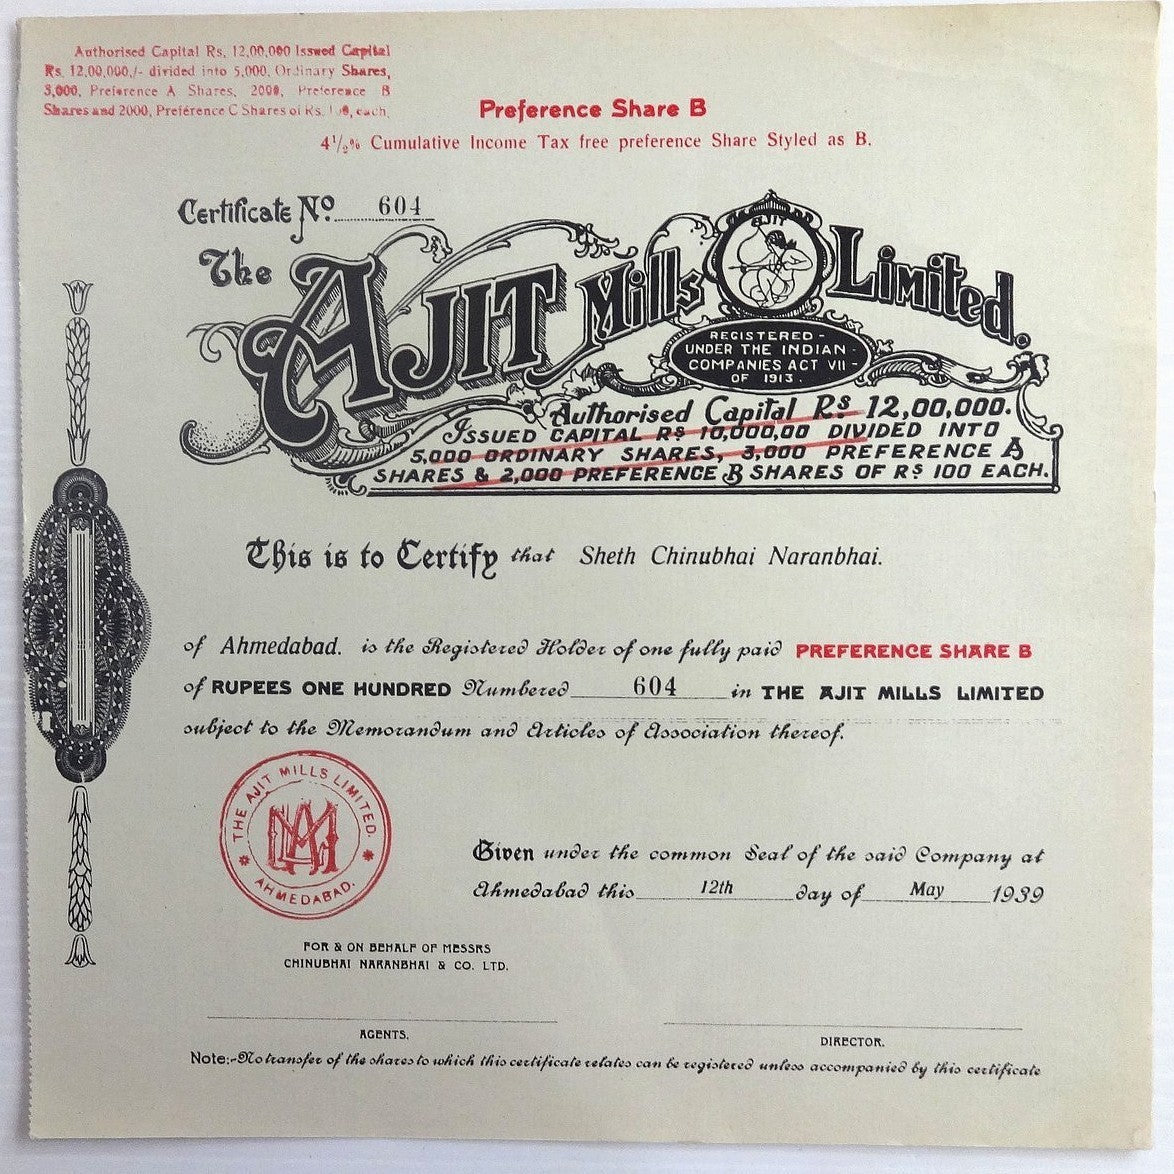 Authorised Capital Rs. 12,00,000 Issued Capital
Rs. 12,00,000/- divided into 5,000, Ordinary Shares,
3,000, Preference A Shares, 2000, Preference B
Shares and 2000, Preference C Shares of Rs. each.
Preference Share B
4½% Cumulative Income Tax free preference Share Styled as B.
Certificate No. 604
The AJIT Mills Limited.
AJIT
REGISTERED-
UNDER THE INDIAN
COMPANIES ACT VII-
OF 1913.
Authorised Capital Rs 12,00,000.
ISSUED CAPITAL Rs 10,000,00 DIVIDED INTO
5,000 ORDINARY SHARES, 3,000 PREFERENCE A
SHARES & 2,000 PREFERENCE B SHARES OF Rs 100 EACH.
This is to Certify that Sheth Chinubhai Naranbhai.
of Ahmedabad. is the Registered Holder of one fully paid PREFERENCE SHARE B
of RUPEES ONE HUNDRED Numbered 604 in THE AJIT MILLS LIMITED
subject to the Memorandum and Articles of Association thereof.
THE AJIT MILLS LIMITED.
AM
* AHMEDABAD. *
Given under the common Seal of the said Company at
Ahmedabad this 12th day of May 1939
FOR & ON BEHALF OF MESSRS
CHINUBHAI NARANBHAI & CO. LTD.
AGENTS.
DIRECTOR.
Note:-No transfer of the shares to which this certificate relates can be registered unless accompanied by this certificate